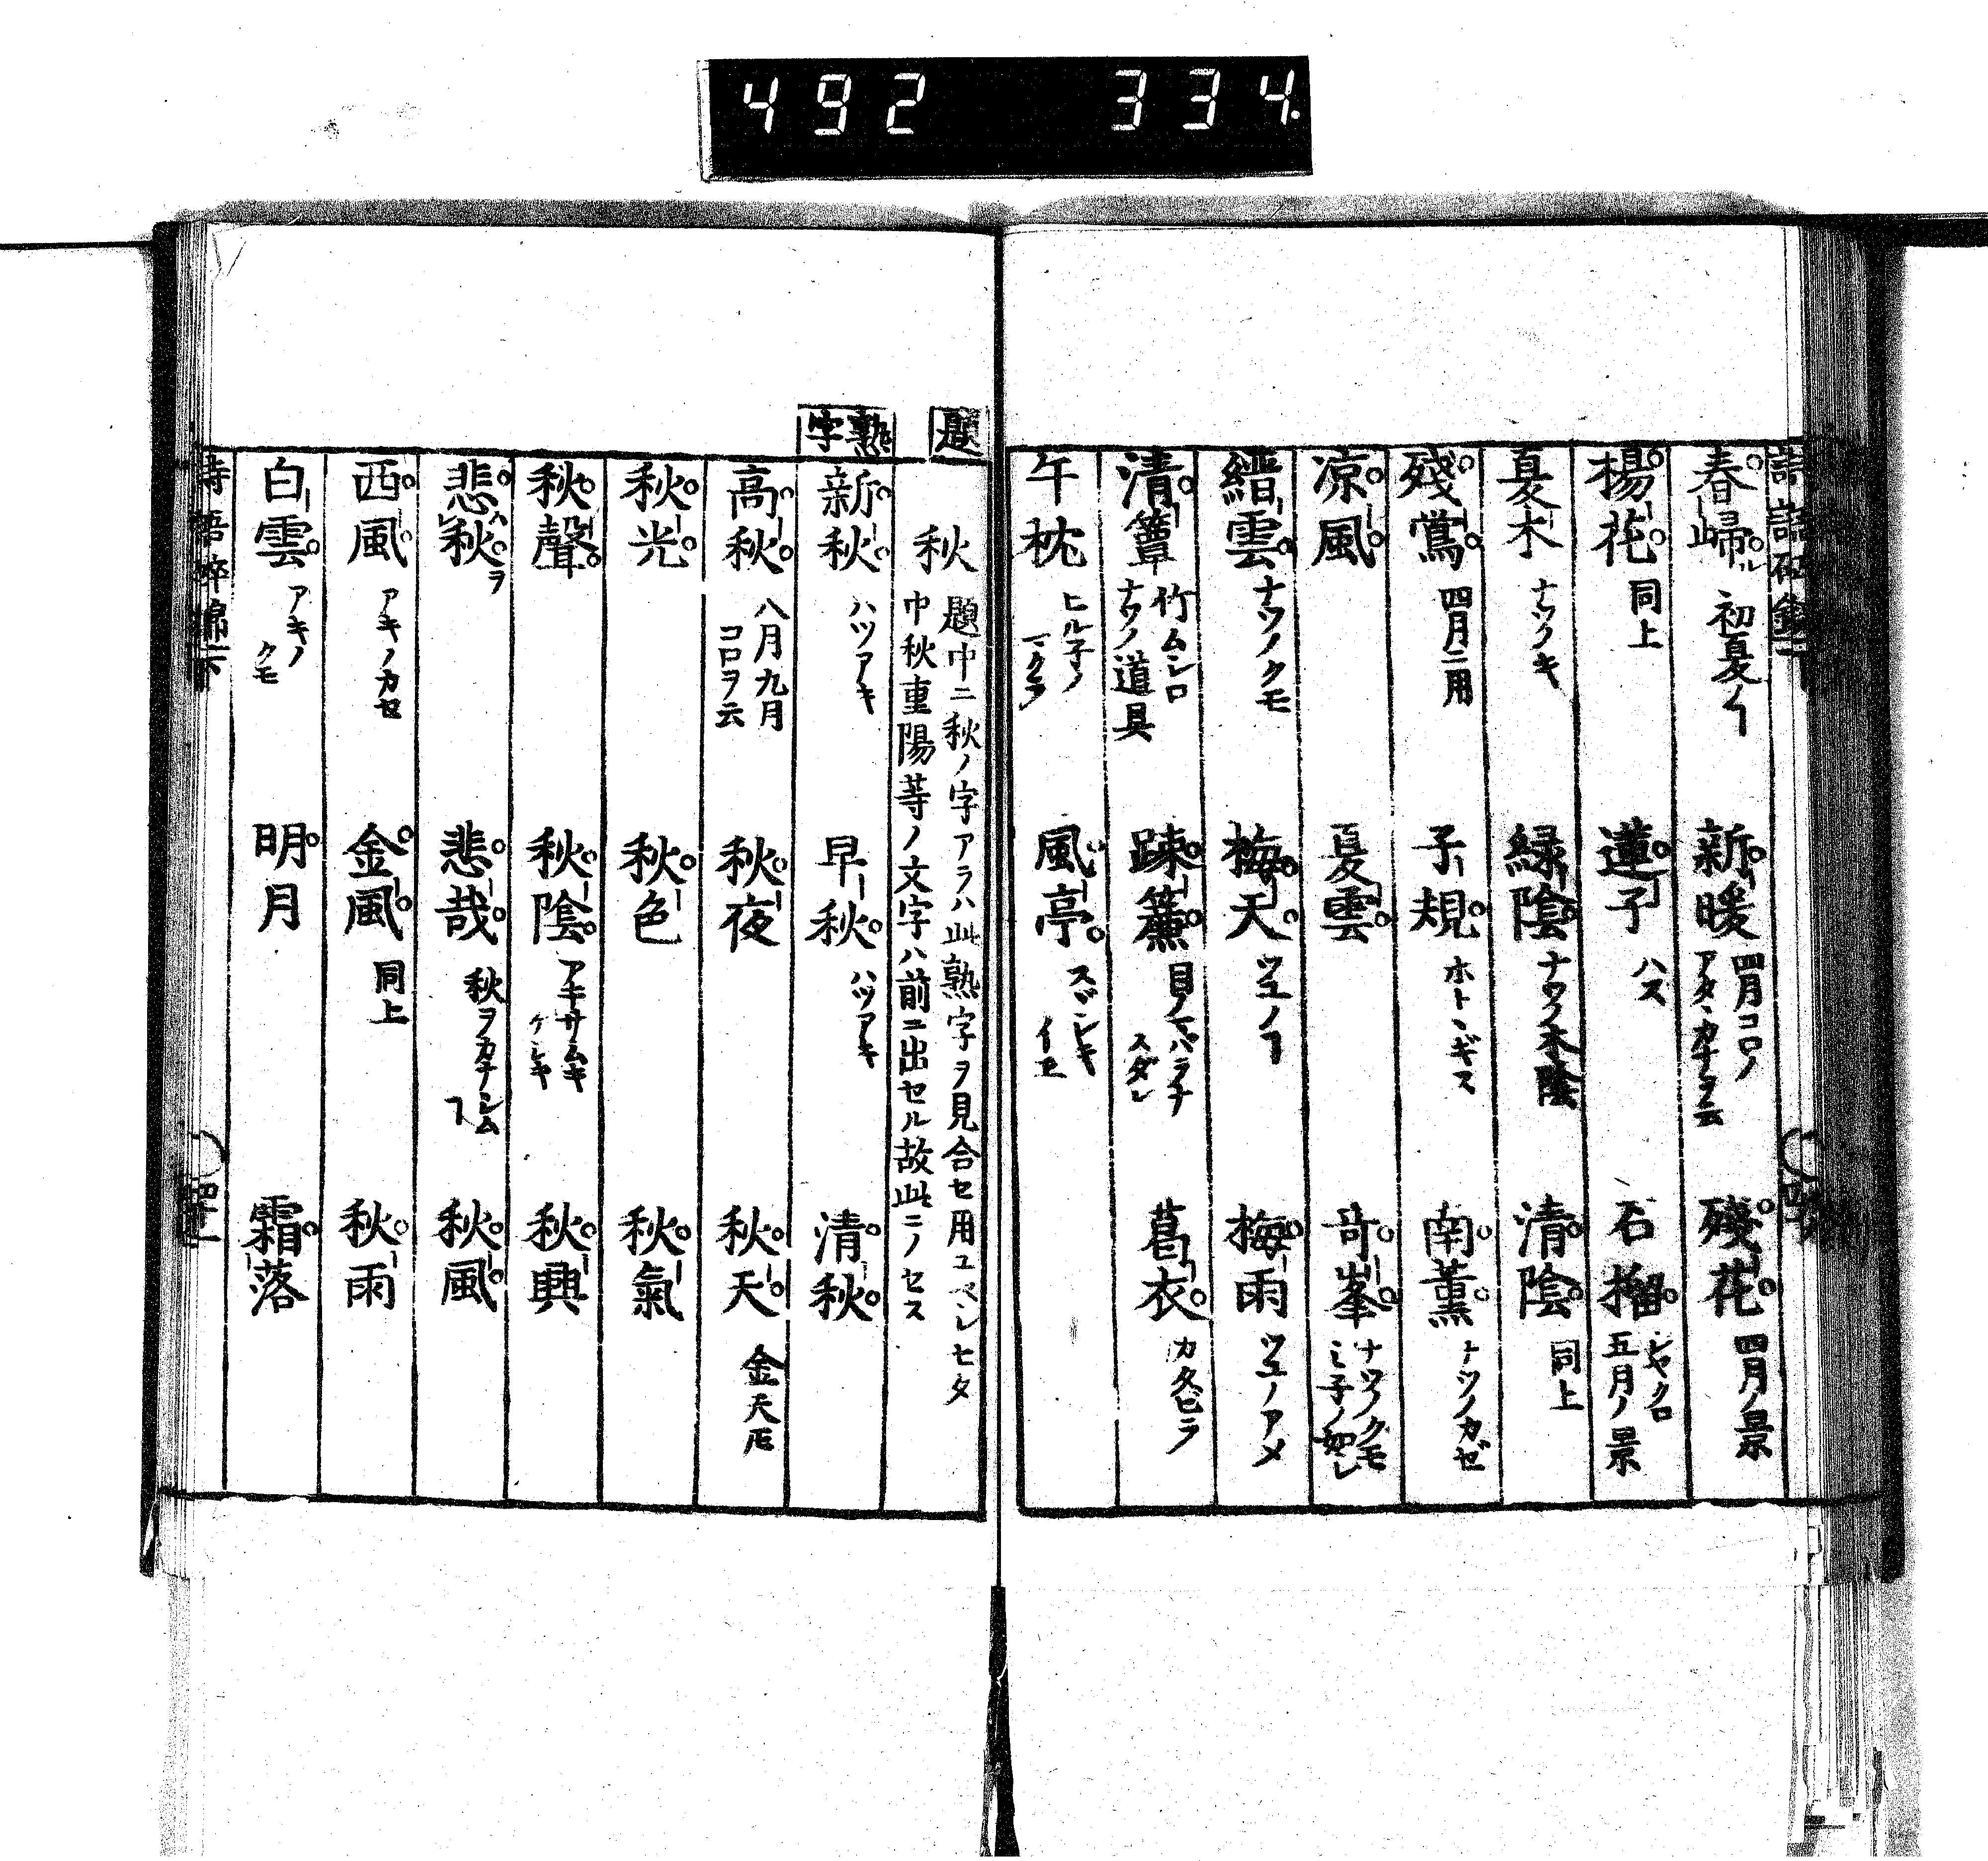 492 334.
春歸ル 初夏ノヿ 新暖 四月コロノアタヽカナヲ云 殘花 四月ノ景
楊花 同上 蓮子 ハス 石榴 シヤクロ 五月ノ景
夏木 ナツノキ 緑陰 ナツノ木陰 清陰 同上
殘鶯 四月ニ用 子規 ホトヽギス 南薫 ナツノカゼ
凉風 夏雲 奇峯 ナツノクモミ子ノ如シ
縉雲 ナツノクモ 梅天 ツユノヿ 梅雨 ツユノアメ
清簟 竹ムシロ ナツノ道具 疎簾 目ノマバラナスダレ 葛衣 カタビラ
午枕 ヒル子ノマクラ 風亭 スヾシキイヱ
題
秋 題中ニ秋ノ字アラハ此熟字ヲ見合セ用ユベシヒタ
中秋重陽等ノ文字ハ前ニ出セル故此ニノセス
熟字
新秋 ハツアキ 早秋 ハツアキ 清秋
高秋 八月九月コロヲ云 秋夜 秋天 金天𪜈
秋光 秋色 秋氣
秋聲 秋陰 アキサムキケシキ 秋興
悲秋ヲ 悲哉 秋ヲカナシム 秋風
西風 アキノカセ 金風 同上 秋雨
白雲 アキノクモ 明月 霜落
詩語碎錦下